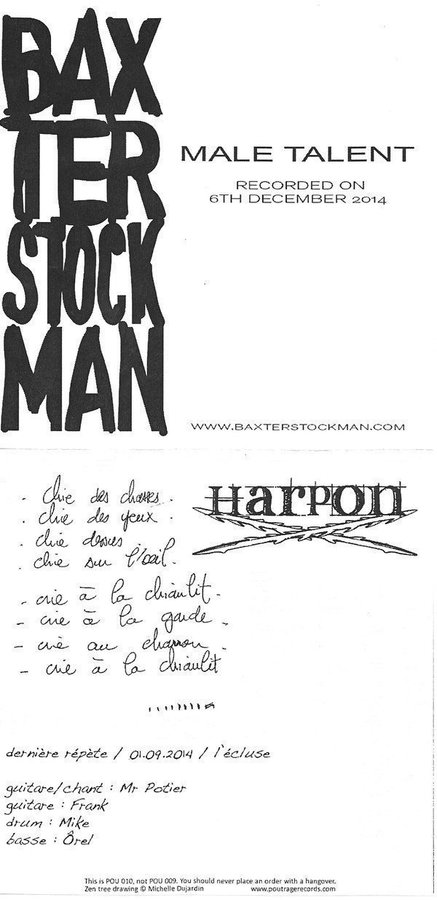 BAX
TER
STOCK
MAN
MALE TALENT
RECORDED ON
6TH DECEMBER 2014
WWW.BAXTERSTOCKMAN.COM
Harpon
. chie des chasses.
. chie des yeux.
. chie dessus.
. chie sur l'oeil.
- crie à la chiaulit.
- crie à la garde.
- crie au charron.
- crie à la chiaulit
dernière répète / 01.09.2014 / l'écluse
guitare/chant : Mr Potier
guitare : Frank
drum : Mike
basse : Ôrel
This is POU 010, not POU 009. You should never place an order with a hangover.
Zen tree drawing © Michelle Dujardin www.poutragerecords.com